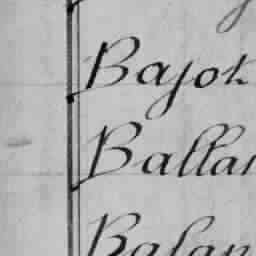 Bajot
Ballar
Balan